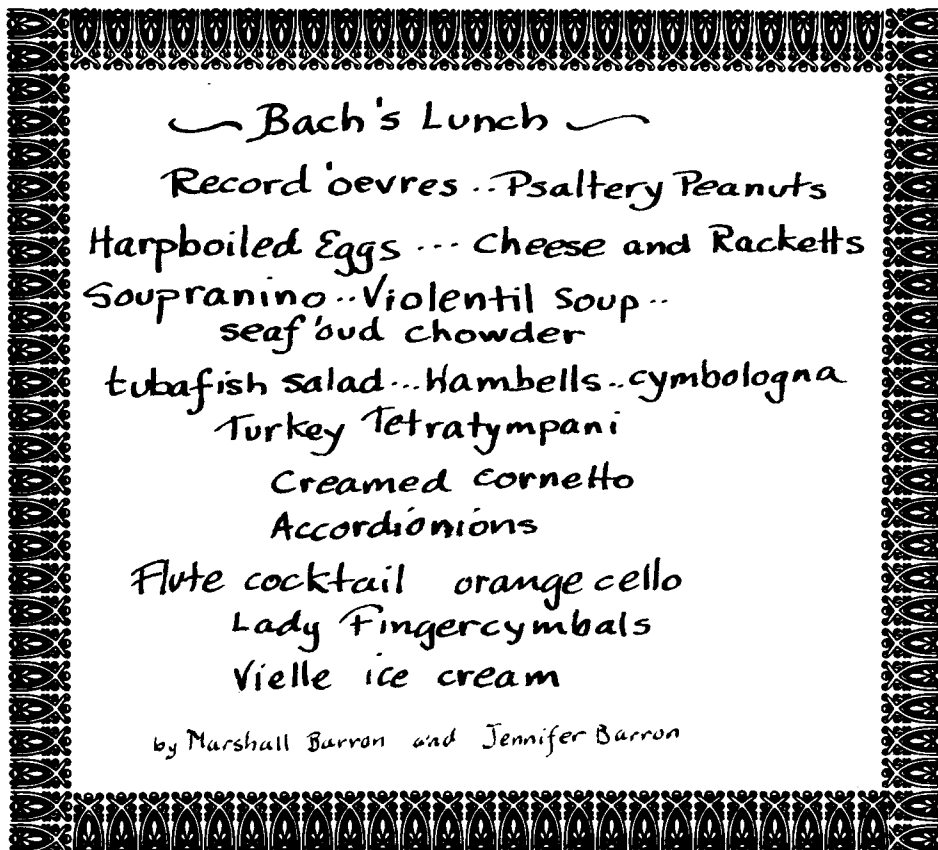 Bach's Lunch
Record 'oevres .. Psaltery Peanuts
Harpboiled Eggs ... Cheese and Racketts
Soupranino .. Violentil Soup ..
seaf'oud chowder
tubafish salad ... Hambells .. cymbologna
Turkey Tetratympani
Creamed cornetto
Accordionions
Flute cocktail orange cello
Lady Fingercymbals
Vielle ice cream
by Marshall Barron and Jennifer Barron